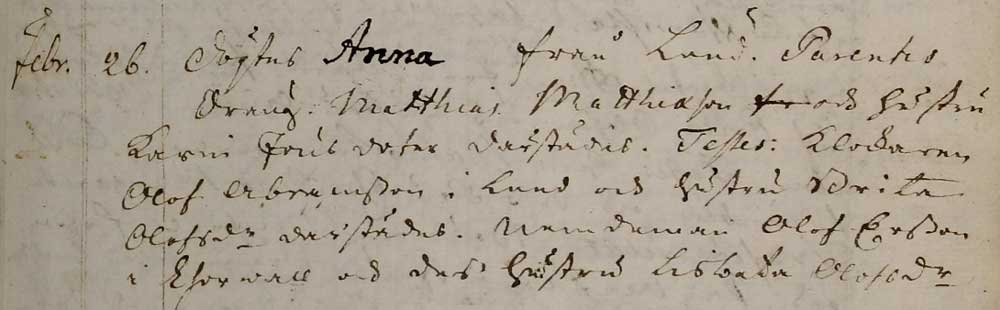 Febr. 26. Döptes Anna från Lund. Parentes
Dräng. Matthias Matthiæson fr och Hustru
Karin Jöns doter därstädes. Testes: Klockaren
Olof Abramsson i Lund och Hustru Brita
Olofsdr därstädes. Nemdeman Olof Ersson
i och des Hustru Lisbeta Olofsdr